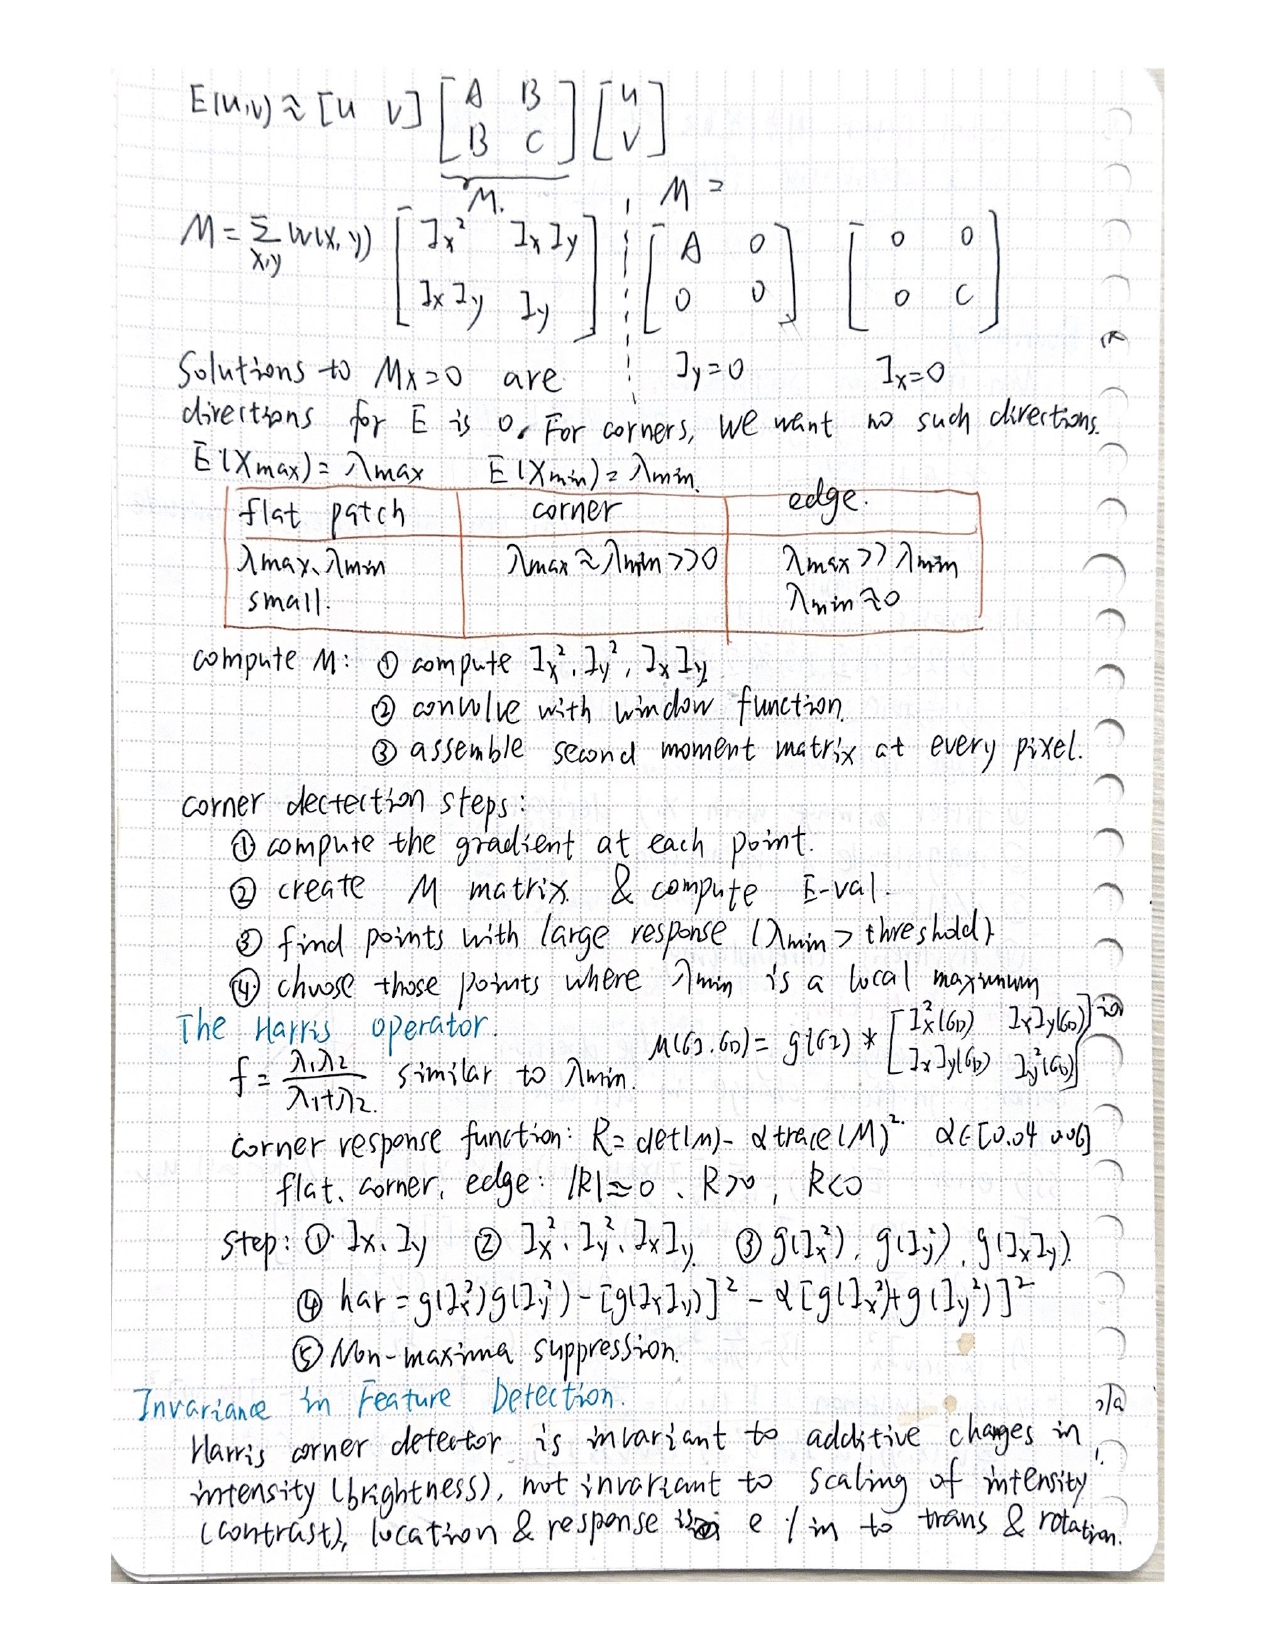 E(u,v) ≈ [u v] [A B; B C] [u; v]
M.
M =
M = Σ_{x,y} w(x,y) [I_x² I_xI_y; I_xI_y I_y] [A 0; 0 0] [0 0; 0 C]
I_y=0 I_x=0
Solutions to Mx=0 are
directions for E is 0. For corners, we want no such directions.
E(Xmax) = λmax E(Xmin) = λmin.
flat patch corner edge.
λmax、λmin small. λmax≈λmin>>0 λmax>>λmin λmin≈0
compute M: ① compute I_x², I_y², I_xI_y
② convolve with window function.
③ assemble second moment matrix at every pixel.
corner dectection steps:
① compute the gradient at each point.
② create M matrix & compute E-val.
③ find points with large response (λmin > threshold)
④ choose those points where λmin is a local maximum
The Harris operator.
M(σI, σD) = g(σI) * [I_x²(σD) I_xI_y(σD); I_xI_y(σD) I_y²(σD)]
f = λ1λ2/(λ1+λ2) similar to λmin.
corner response function: R = det(M) - α trace(M)² α∈[0.04 0.06]
flat、corner, edge: |R|≈0、R>0, R<0
step: ① I_x、I_y ② I_x²、I_y²、I_xI_y ③ g(I_x²), g(I_y²), g(I_xI_y)
④ har = g(I_x²)g(I_y²) - [g(I_xI_y)]² - α[g(I_x²)+g(I_y²)]²
⑤ Non-maxima suppression.
Invariance in Feature Detection.
Harris corner detector is invariant to additive changes in
intensity (brightness), not invariant to scaling of intensity
(contrast), location & response is e / in to trans & rotation.